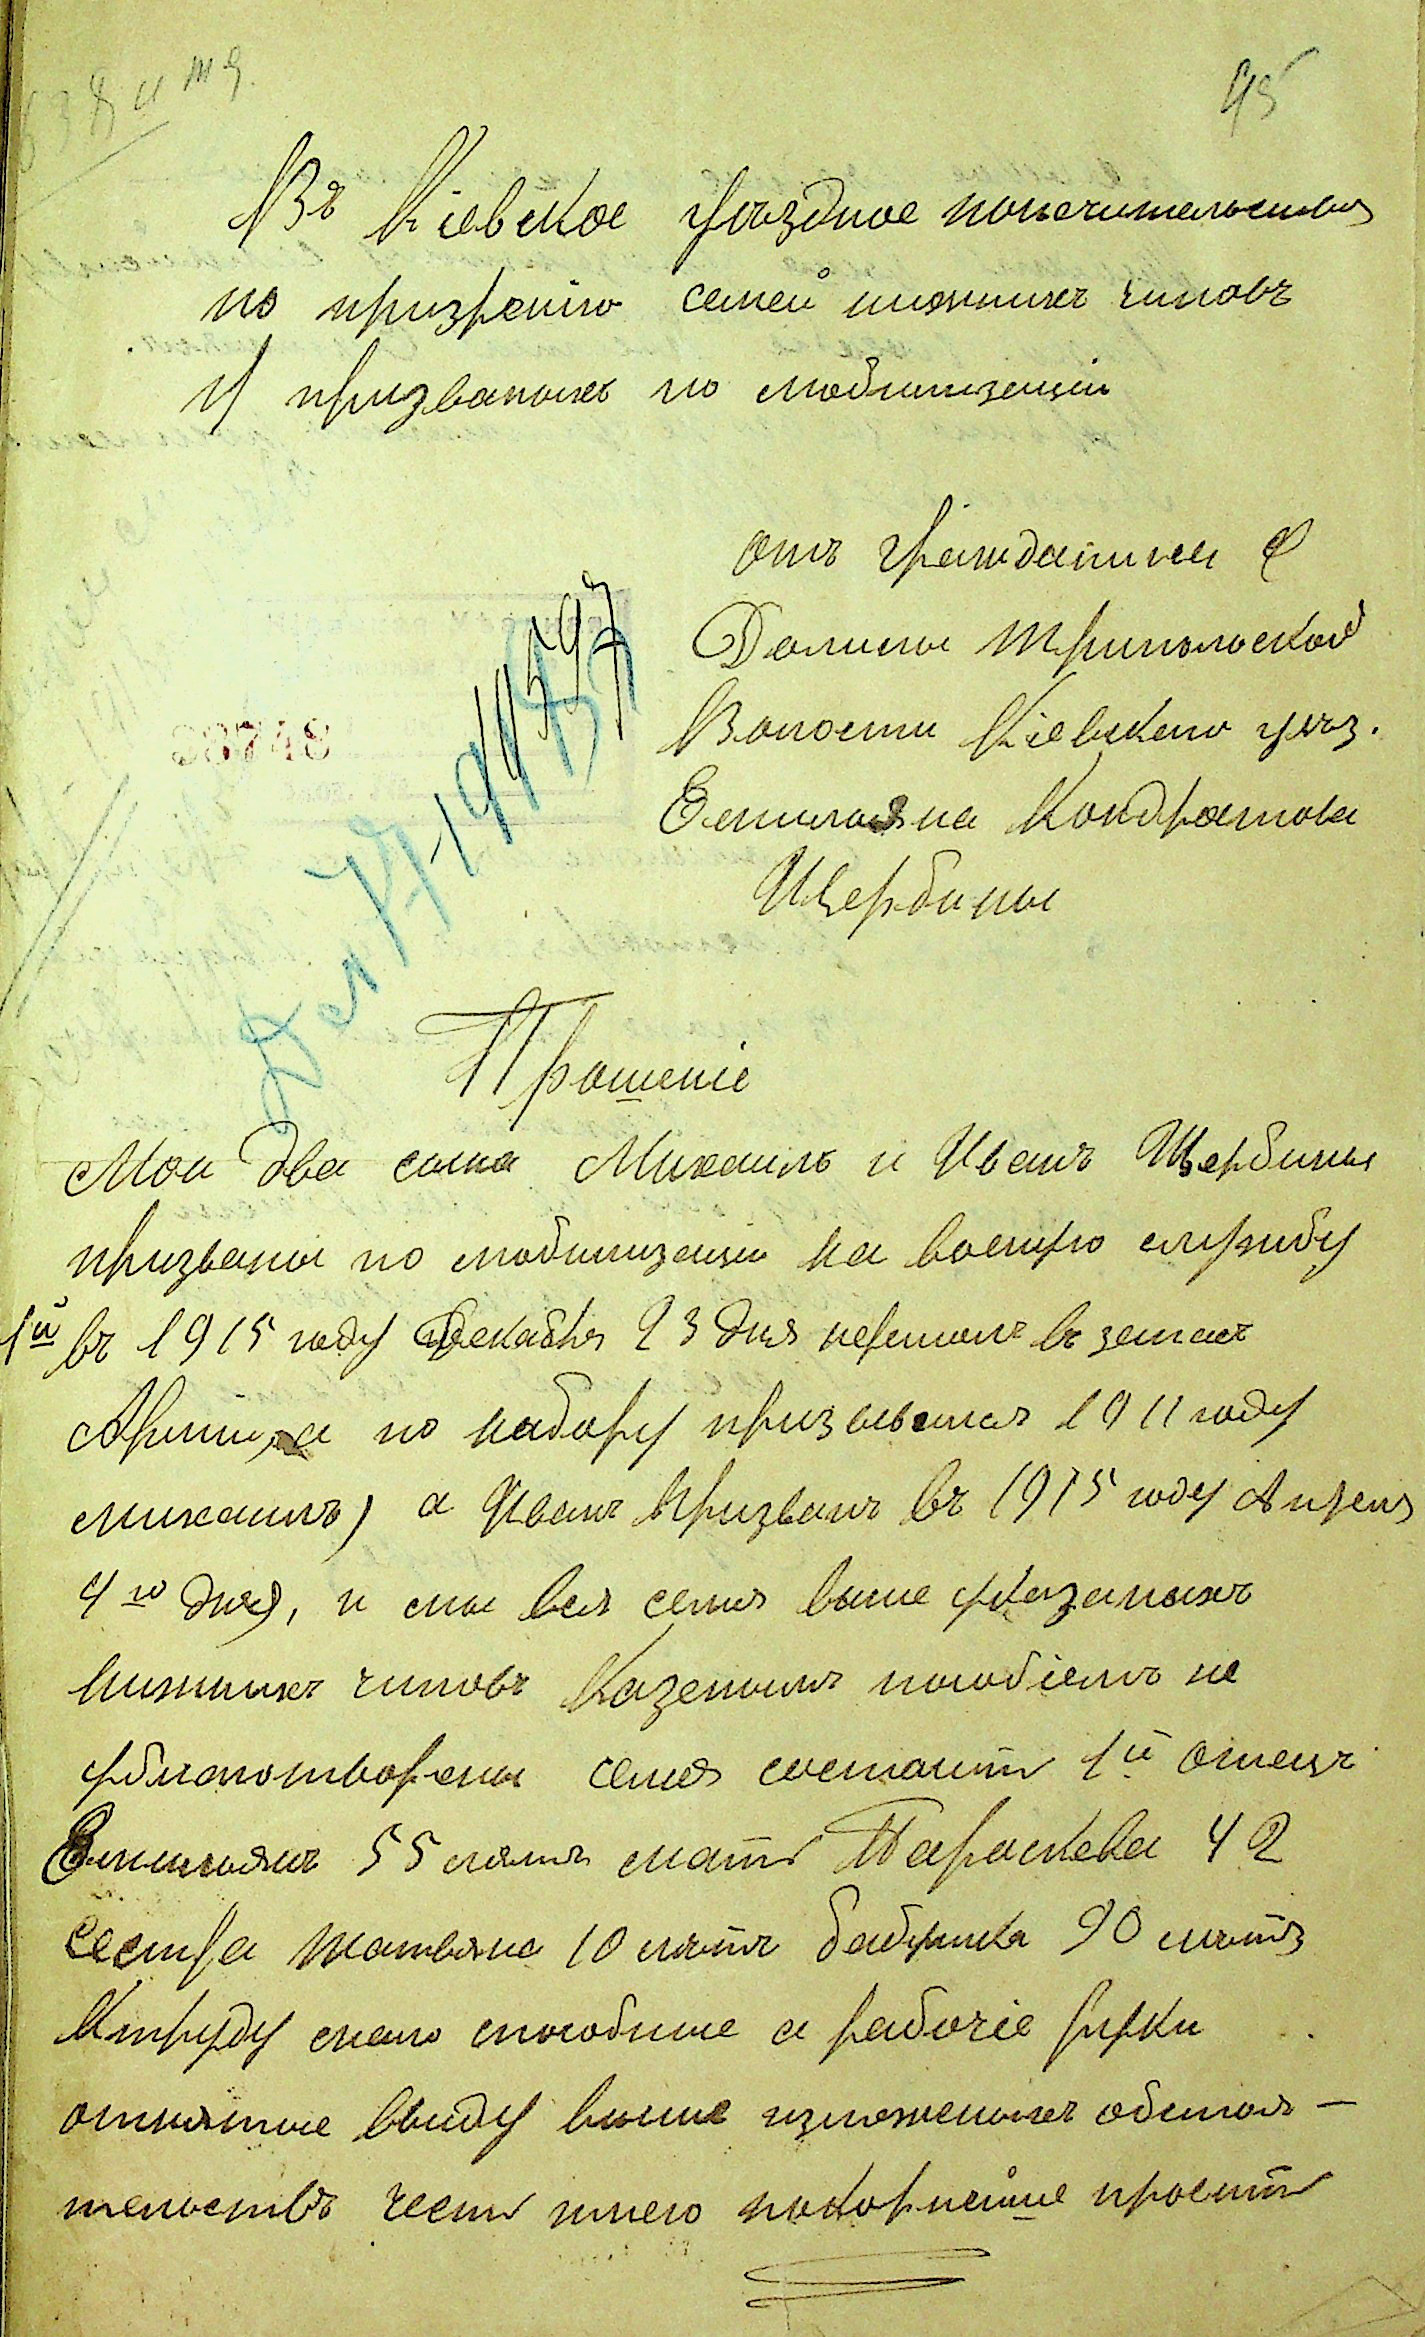 45
Въ Кіевское уѣздное попечительство
по призрѣнію семей нижнихъ чиновъ
и призваныхъ по мобилизаціи
отъ гражданина с
Долины Трипольской
Волости Кіевкого уѣз.
Емилояна Кондратова
Щербины
Прошеніе
Мои два сына Михаилъ и Иванъ Щербины
призваны по мобилизаціи на воєную службу
1й въ 1915 году Декабря 23 дня
Арміи, а по набору призывался 1911 году
михаилъ) а Иванъ призванъ въ 1915 году Апреля
4го дня), и мы вся семя выше указаныхъ
нижнихъ чиновъ Казенымъ пособіемъ не
ублаготворены семя состоитъ 1й отецъ
Емильянъ 55 лѣтъ мать Параскева 42
сестра татьяна 10 лѣтъ бабушка 90 лѣтъ
Ктруду мало способные а рабочіе руки
отнятые ввиду выше изложеныхъ обстоя-
тельствъ честь имею покорнейше просить